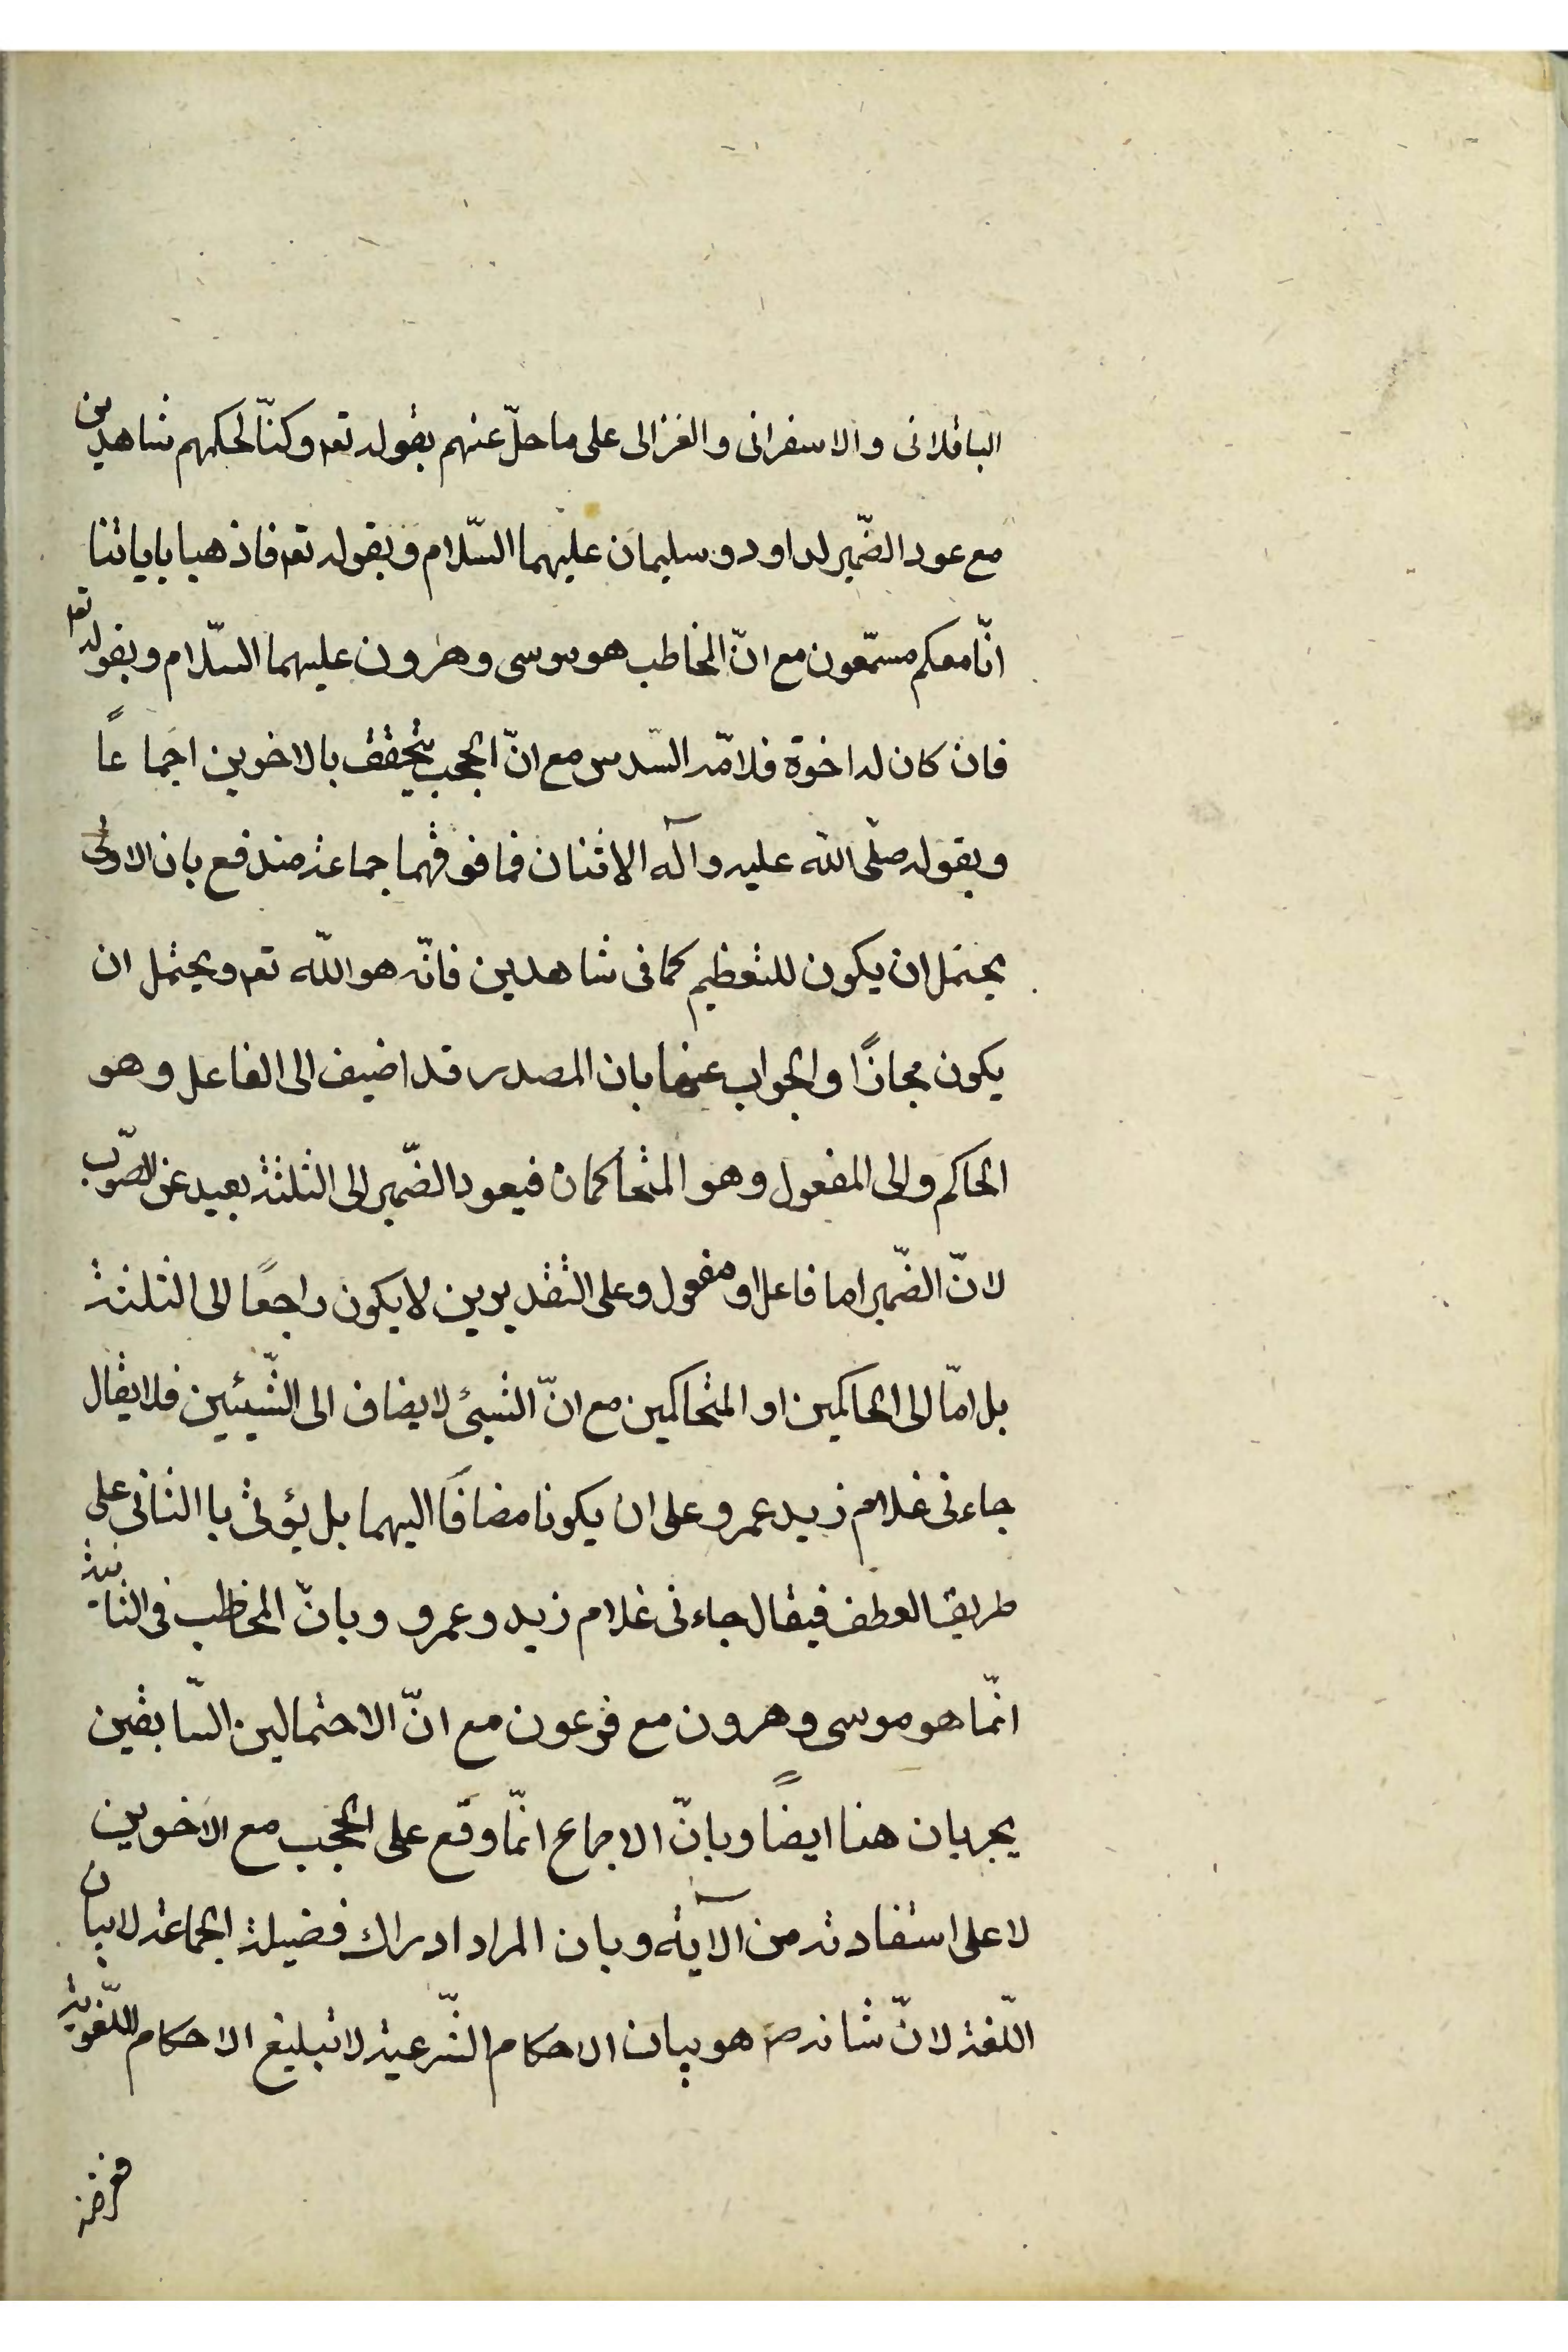 الباقلانى والاسفرانى والغزالى على ما حلّ عنهم بقوله تعم وكنّا لحكمهم شاهدين
مع عود الضّمير لداود وسليمان عليهما السّلام وبقوله تعم فاذهبا باياتنا
انّا معكم مستمّعون مع انّ المخاطب هو موسى وهرون عليهما السّلام وبقوله تعم
فان كان له اخوة فلامّه السّدس مع انّ الحجب يتحقق بالاخوين اجماعًا
وبقوله صلّى الله عليه وآله الاثنان فما فوقهما جماعة مندفع بان الاولى
يحتمل ان يكون للتعظيم كما فى شاهدين فانّه هو اللّه تعم ويحتمل ان
يكون مجازًا والجواب عنها بان المصدر قد اضيف الى الفاعل وهو
الحاكم والى المفعول وهو المتحاكمان فيعود الضّمير الى الثلثة بعيد عن الصّوب
لانّ الضّمير اما فاعل او مفعول وعلى التقديرين لا يكون راجعًا الى الثلثة
بل امّا الى الحاكمين او المتحاكمين مع انّ الشيئ لا يضاف الى الشّيئين فلا يقال
جاءنى غلام زيد عمرو على ان يكونا مضافًا اليهما بل يؤتى با الثانى على
طريق العطف فيقال جاءنى غلام زيد وعمرو وبانّ المخاطب فى الثانية
انّما هو موسى وهرون مع فرعون مع انّ الاحتمالين السّابقين
يجريان هنا ايضًا وبانّ الاجماع انّما وقع على الحجب مع الاخوين
لا على استفادته من الآية وبان المراد ادراك فضيلة الجماعة لا بيان
اللّغة لانّ شانه ص هو بيان الاحكام الشّرعية لا تبليغ الاحكام اللّغوية